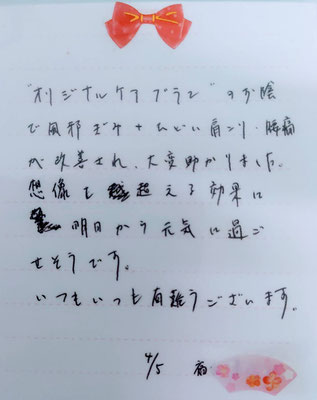 "オリジナルケアプラン"のお陰
で風邪ぎみ+ひどい肩こり・腰痛
が改善され、大変助かりました。
想像を超える効果に
明日から元気に過ご
せそうです。
いつもいつも有難うございます。
4/5